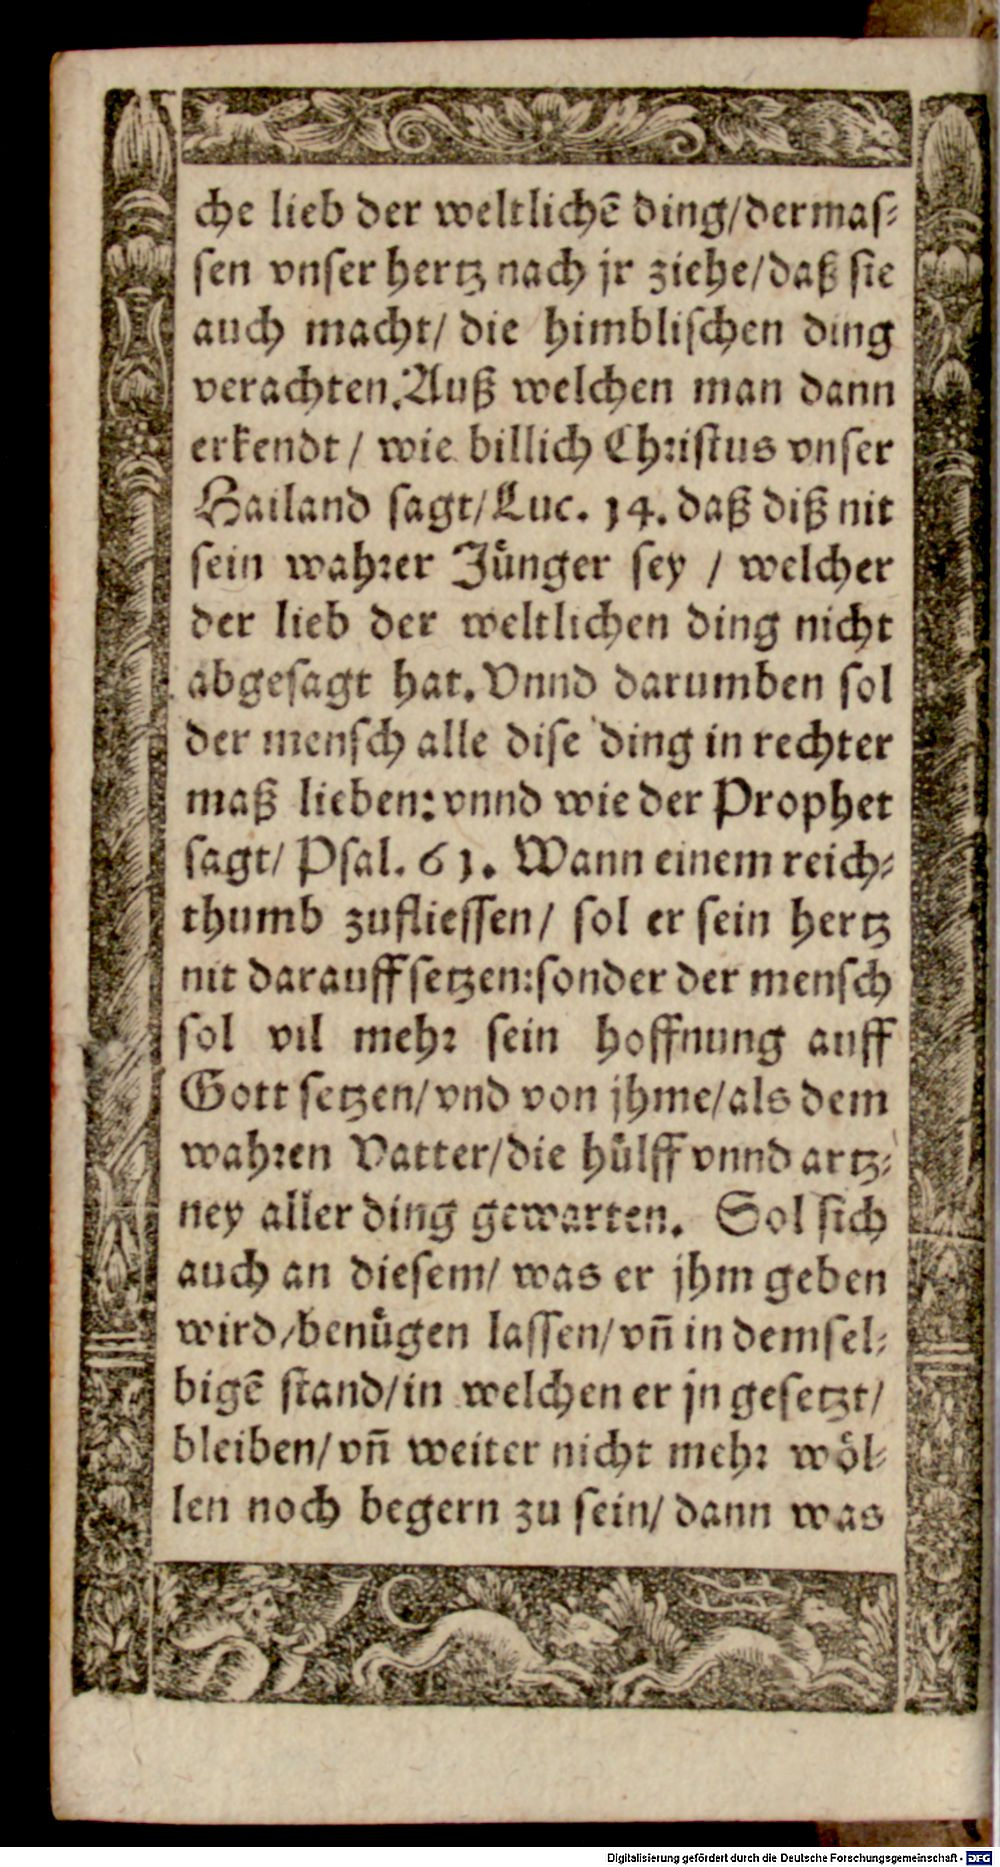 che lieb der weltlichē ding/dermaſ⸗
ſen vnſer hertz nach jr ziehe/daß ſie
auch macht/ die himbliſchen ding
verachten. Auß welchen man dann
erkendt / wie billich Chꝛiſtus vnſer
Hailand ſagt/Luc. 14. daß diß nit
ſein wahꝛer Jůnger ſey / welcher
der lieb der weltlichen ding nicht
abgeſagt hat. Vnnd darumben ſol
der menſch alle diſe ding in rechter
maß lieben: vnnd wie der Prophet
ſagt/ Pſal. 61. Wann einem reich⸗
thumb zuflieſſen/ ſol er ſein hertz
nit darauff ſetzen: ſonder der menſch
ſol vil mehꝛ ſein hoffnung auff
Gott ſetzen/vnd von jhme/als dem
wahꝛen Vatter/die hůlff vnnd artz⸗
ney aller ding gewarten. Sol ſich
auch an dieſem/ was er jhm geben
wird/benůgen laſſen/vn̄ in demſel⸗
bigē ſtand/in welchen er jn geſetzt/
bleiben/vn̄ weiter nicht mehꝛ wöl⸗
len noch begern zu ſein/ dann was
Digitalisierung gefördert durch die Deutsche Forschungsgemeinschaft - DFG